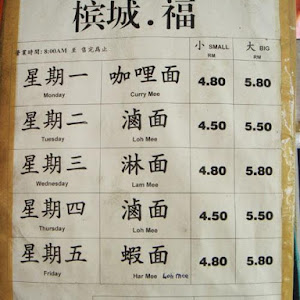 槟城.福
營業時間: 8:00AM 至 售完爲止
小 SMALL 大 BIG
RM RM
星期一 咖哩面 4.80 5.80
Monday Curry Mee
星期二 滷面 4.50 5.50
Tuesday Loh Mee
星期三 淋面 4.80 5.80
Wednesday Lam Mee
星期四 滷面 4.50 5.50
Thursday Loh Mee
星期五 蝦面 4.80 5.80
Friday Har Mee Loh mee